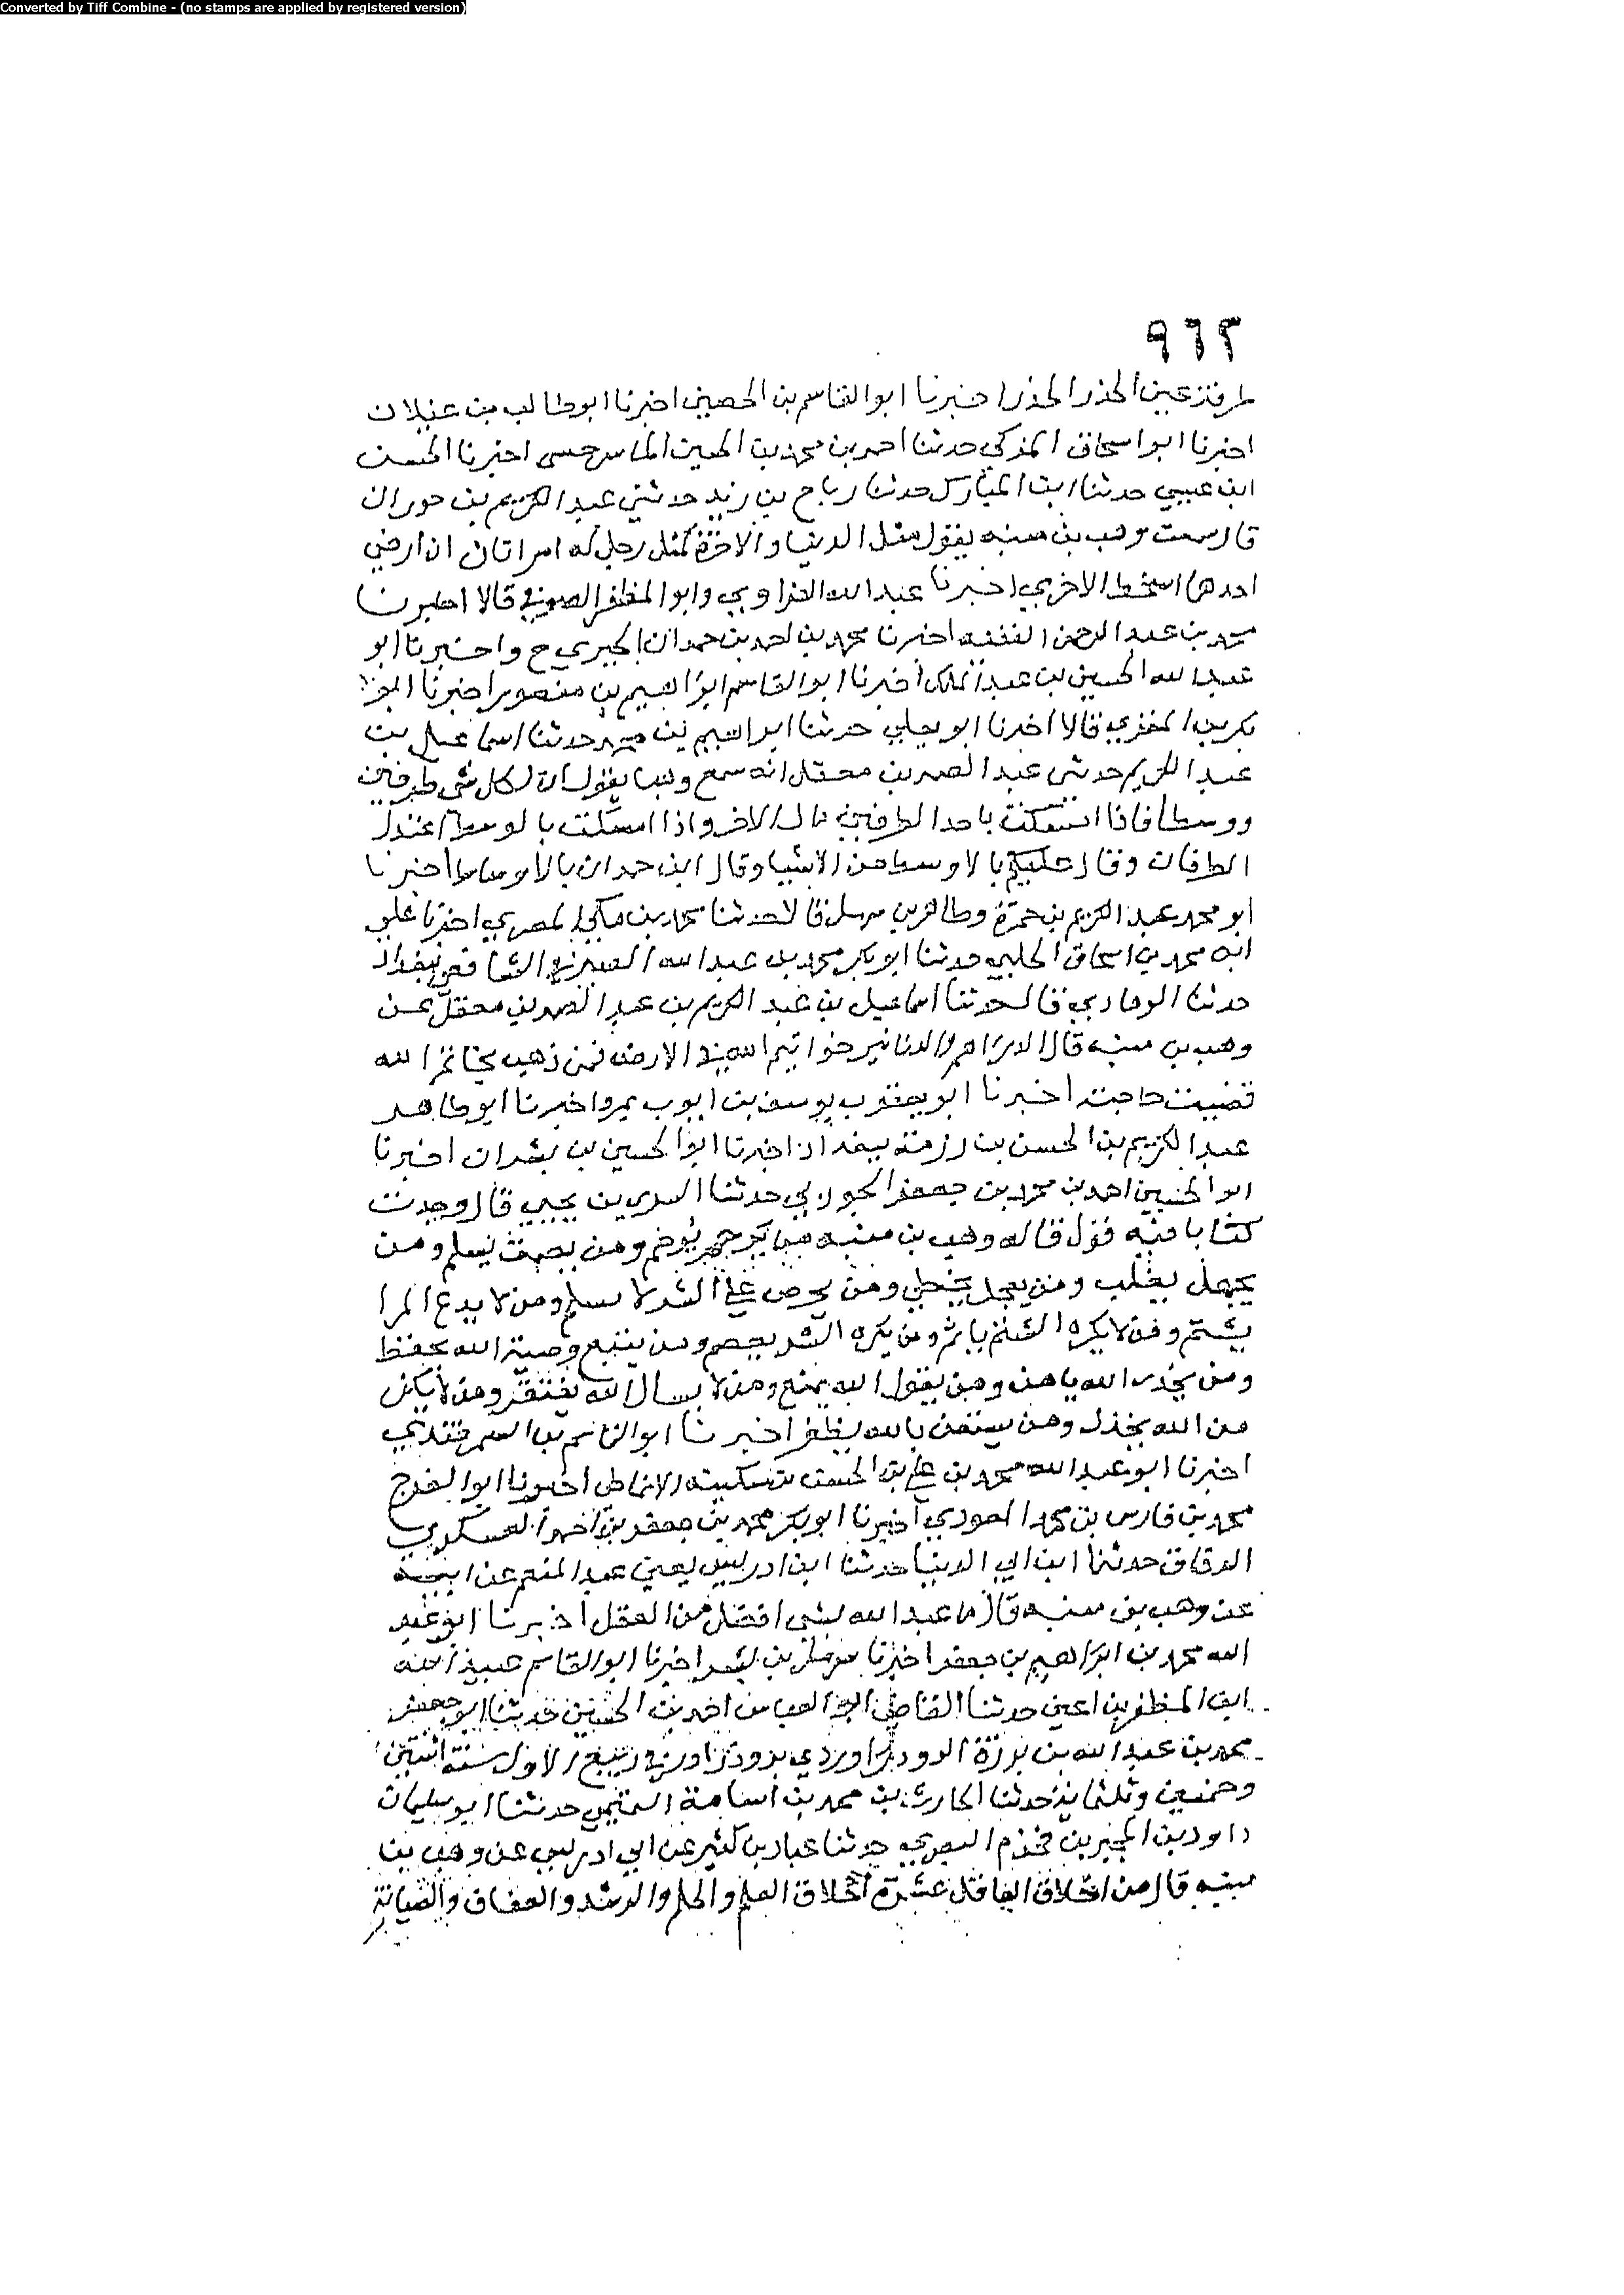 Converted by Tiff Combine - (no stamps are applied by registered version)
٩٦٣
طرفة عين الحذر الحذر اخبرنا ابو القاسم بن الحصين اخبرنا ابو طالب بن غيلان
اخبرنا ابو اسحاق المزكي حدثنا احمد بن محمد بن الحسين الماسرجسى اخبرنا الحسن
ابن عيسي حدثنا ابن المبارك حدثنا رباح بن زيد حدثني عبد الكريم بن حوران
قال سمعت وهب بن منبه يقول مثل الدنيا والاخرة كمثل رجل له امراتان ان ارضي
احدهما اسخط الاخري اخبرنا عبد الله الفراوي وابو المظفر الصوفي قالا اخبرنا
محمد بن عبد الرحمن الفقيه اخبرنا محمد بن احمد بن حمدان الحيري ح واخبرنا ابو
عبد الله الحسين بن عبد الملك اخبرنا ابو القاسم ابراهيم بن منصور اخبرنا ابو
بكر بن المقري قالا اخبرنا ابو يعلي حدثنا ابراهيم بن حدثنا اسماعيل بن
عبد الكريم حدثني عبد الصمد بن معقل انه سمع وهبا يقول ان لكل شى طرفين
ووسطا فاذا امسكت باحد الطرفين مال الاخر واذا امسكت بالوسط اعتدل
الطرفان وقال عليكم بالاوسط من الاشيا وقال ابن حمدان بالاوساط اخبرنا
ابو محمد عبد الكريم بن حمزة وطاهر بن سهل قالا حدثنا محمد بن مكي المصري اخبرنا علي
ابن محمد بن اسحاق الحلبي حدثنا ابو بكر محمد بن عبد الله الصيرفي الشافعي ببغداد
حدثنا الرمادي قال حدثنا اسماعيل بن عبد الكريم بن عبد الصمد بن معقل عن
وهب بن منبه قال الدراهم والدنانير خواتيم الله في الارض فمن ذهب بخاتم الله
قضيت حاجته اخبرنا ابو يعقوب يوسف بن ايوب بمرو اخبرنا ابو طاهر
عبد الكريم بن الحسن بن رزمة ببغداد اخبرنا ابو الحسين بن بشران اخبرنا
ابو الحسين احمد بن محمد بن جعفر الجوزي حدثنا السري بن يحيي قال وجدت
كتابا فيه قول قاله وهب بن منبه من يرحم يرحم ومن يصمت يسلم ومن
يجهل يغلب ومن يعجل يخطي ومن يحرص علي الشر لا يسلم ومن لا يدع المرا
يشتم ومن لا يكره الشتم ياثم ومن يكره الشر يعصم ومن يتبع وصية الله يحفظ
ومن يحذر الله يامن ومن يتول الله يمنع ومن لا يسال الله يفتقر ومن لا يكن
من الله يخذل ومن يستعن بالله يظفر اخبرنا ابو القاسم بن السمرقندي
اخبرنا ابو عبد الله محمد بن علي بن الحسن بن سكينه الانماطى اخبرنا ابو الفرج
محمد بن فارس بن محمد الغوري اخبرنا ابو بكر محمد بن جعفر بن احمد العسكري
الدقاق حدثنا ابن ابي الدنيا حدثنا ابن ادريس يعني عبد المنعم عن ابيه
عن وهب بن منبه قال ما عبد الله بشى افضل من العقل اخبرنا ابو عبد
الله محمد بن ابراهيم بن جعفر اخبرنا سهل بن بشر اخبرنا ابو القاسم عبيد الله
ابن المظفر بن اعين حدثنا القاضي ابو العباس احمد بن الحسين حدثنا ابو جعفر
محمد بن عبد الله بن برزة الروذراوردي بروذراور في ربيع الاول سنة اثنتين
وخمسين وثلثماية حدثنا الحارث بن محمد بن اسامة التميمي حدثنا ابو سليمان
داود بن المحبر بن مخذم البصري حدثنا عباد بن كثير عن ابي ادريس عن وهب بن
منبه قال من اخلاق العاقل عشرة اخلاق العلم والحلم والرشد والعفاف والصيانة